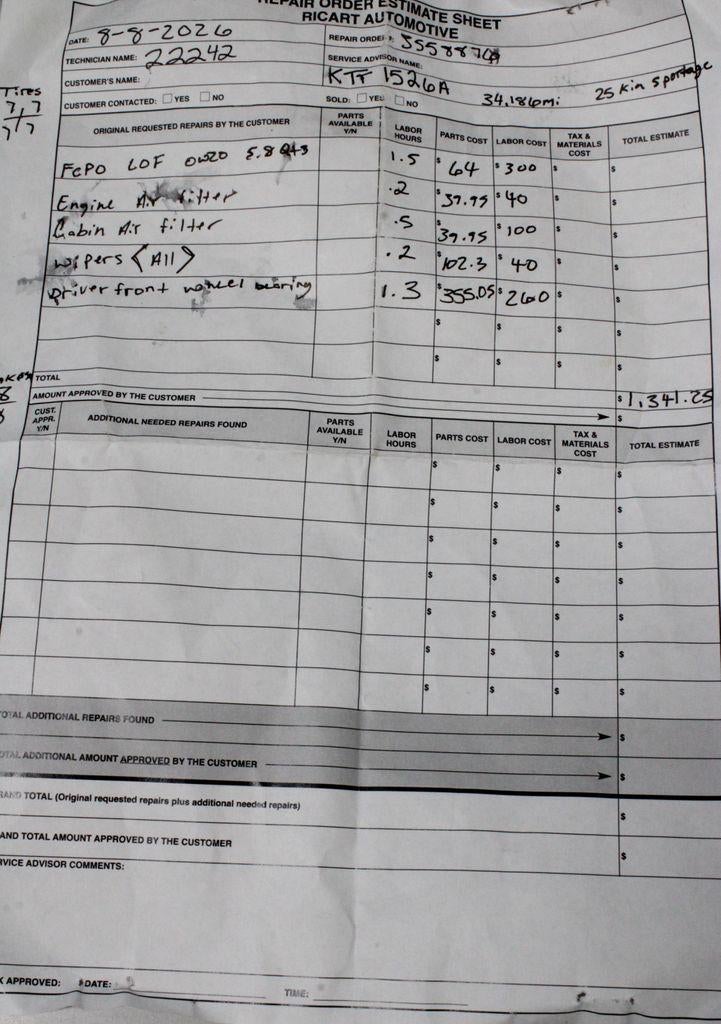 REPAIR ORDER ESTIMATE SHEET
RICART AUTOMOTIVE
DATE: 8-8-2026
REPAIR ORDER #:
TECHNICIAN NAME: 22242
SERVICE ADVISOR NAME:
KTF 1526A
CUSTOMER'S NAME:
34,186mi 25 Kia Sportage
CUSTOMER CONTACTED: YES NO SOLD: YES NO
Tires
7, 7
7 7
ORIGINAL REQUESTED REPAIRS BY THE CUSTOMER PARTS AVAILABLE Y/N LABOR HOURS PARTS COST LABOR COST TAX & MATERIALS COST TOTAL ESTIMATE
LOF 0W20 5.8 Qts 1.5 $64 $300 $ $
Engine Air filter .2 $39.95 $40 $ $
Cabin Air filter .5 $39.95 $100 $ $
wipers <All> .2 $102.3 $40 $ $
Driver front wheel bearing 1.3 $355.05 $260 $ $
$ $ $ $
$ $ $ $
TOTAL $1,341.25
AMOUNT APPROVED BY THE CUSTOMER $
CUST. APPR. Y/N ADDITIONAL NEEDED REPAIRS FOUND PARTS AVAILABLE Y/N LABOR HOURS PARTS COST LABOR COST TAX & MATERIALS COST TOTAL ESTIMATE
$ $ $ $
$ $ $ $
$ $ $ $
$ $ $ $
$ $ $ $
$ $ $ $
$ $ $ $
OTAL ADDITIONAL REPAIRS FOUND $
OTAL ADDITIONAL AMOUNT APPROVED BY THE CUSTOMER $
RAND TOTAL (Original requested repairs plus additional needed repairs) $
AND TOTAL AMOUNT APPROVED BY THE CUSTOMER $
RVICE ADVISOR COMMENTS:
K APPROVED: DATE: TIME: